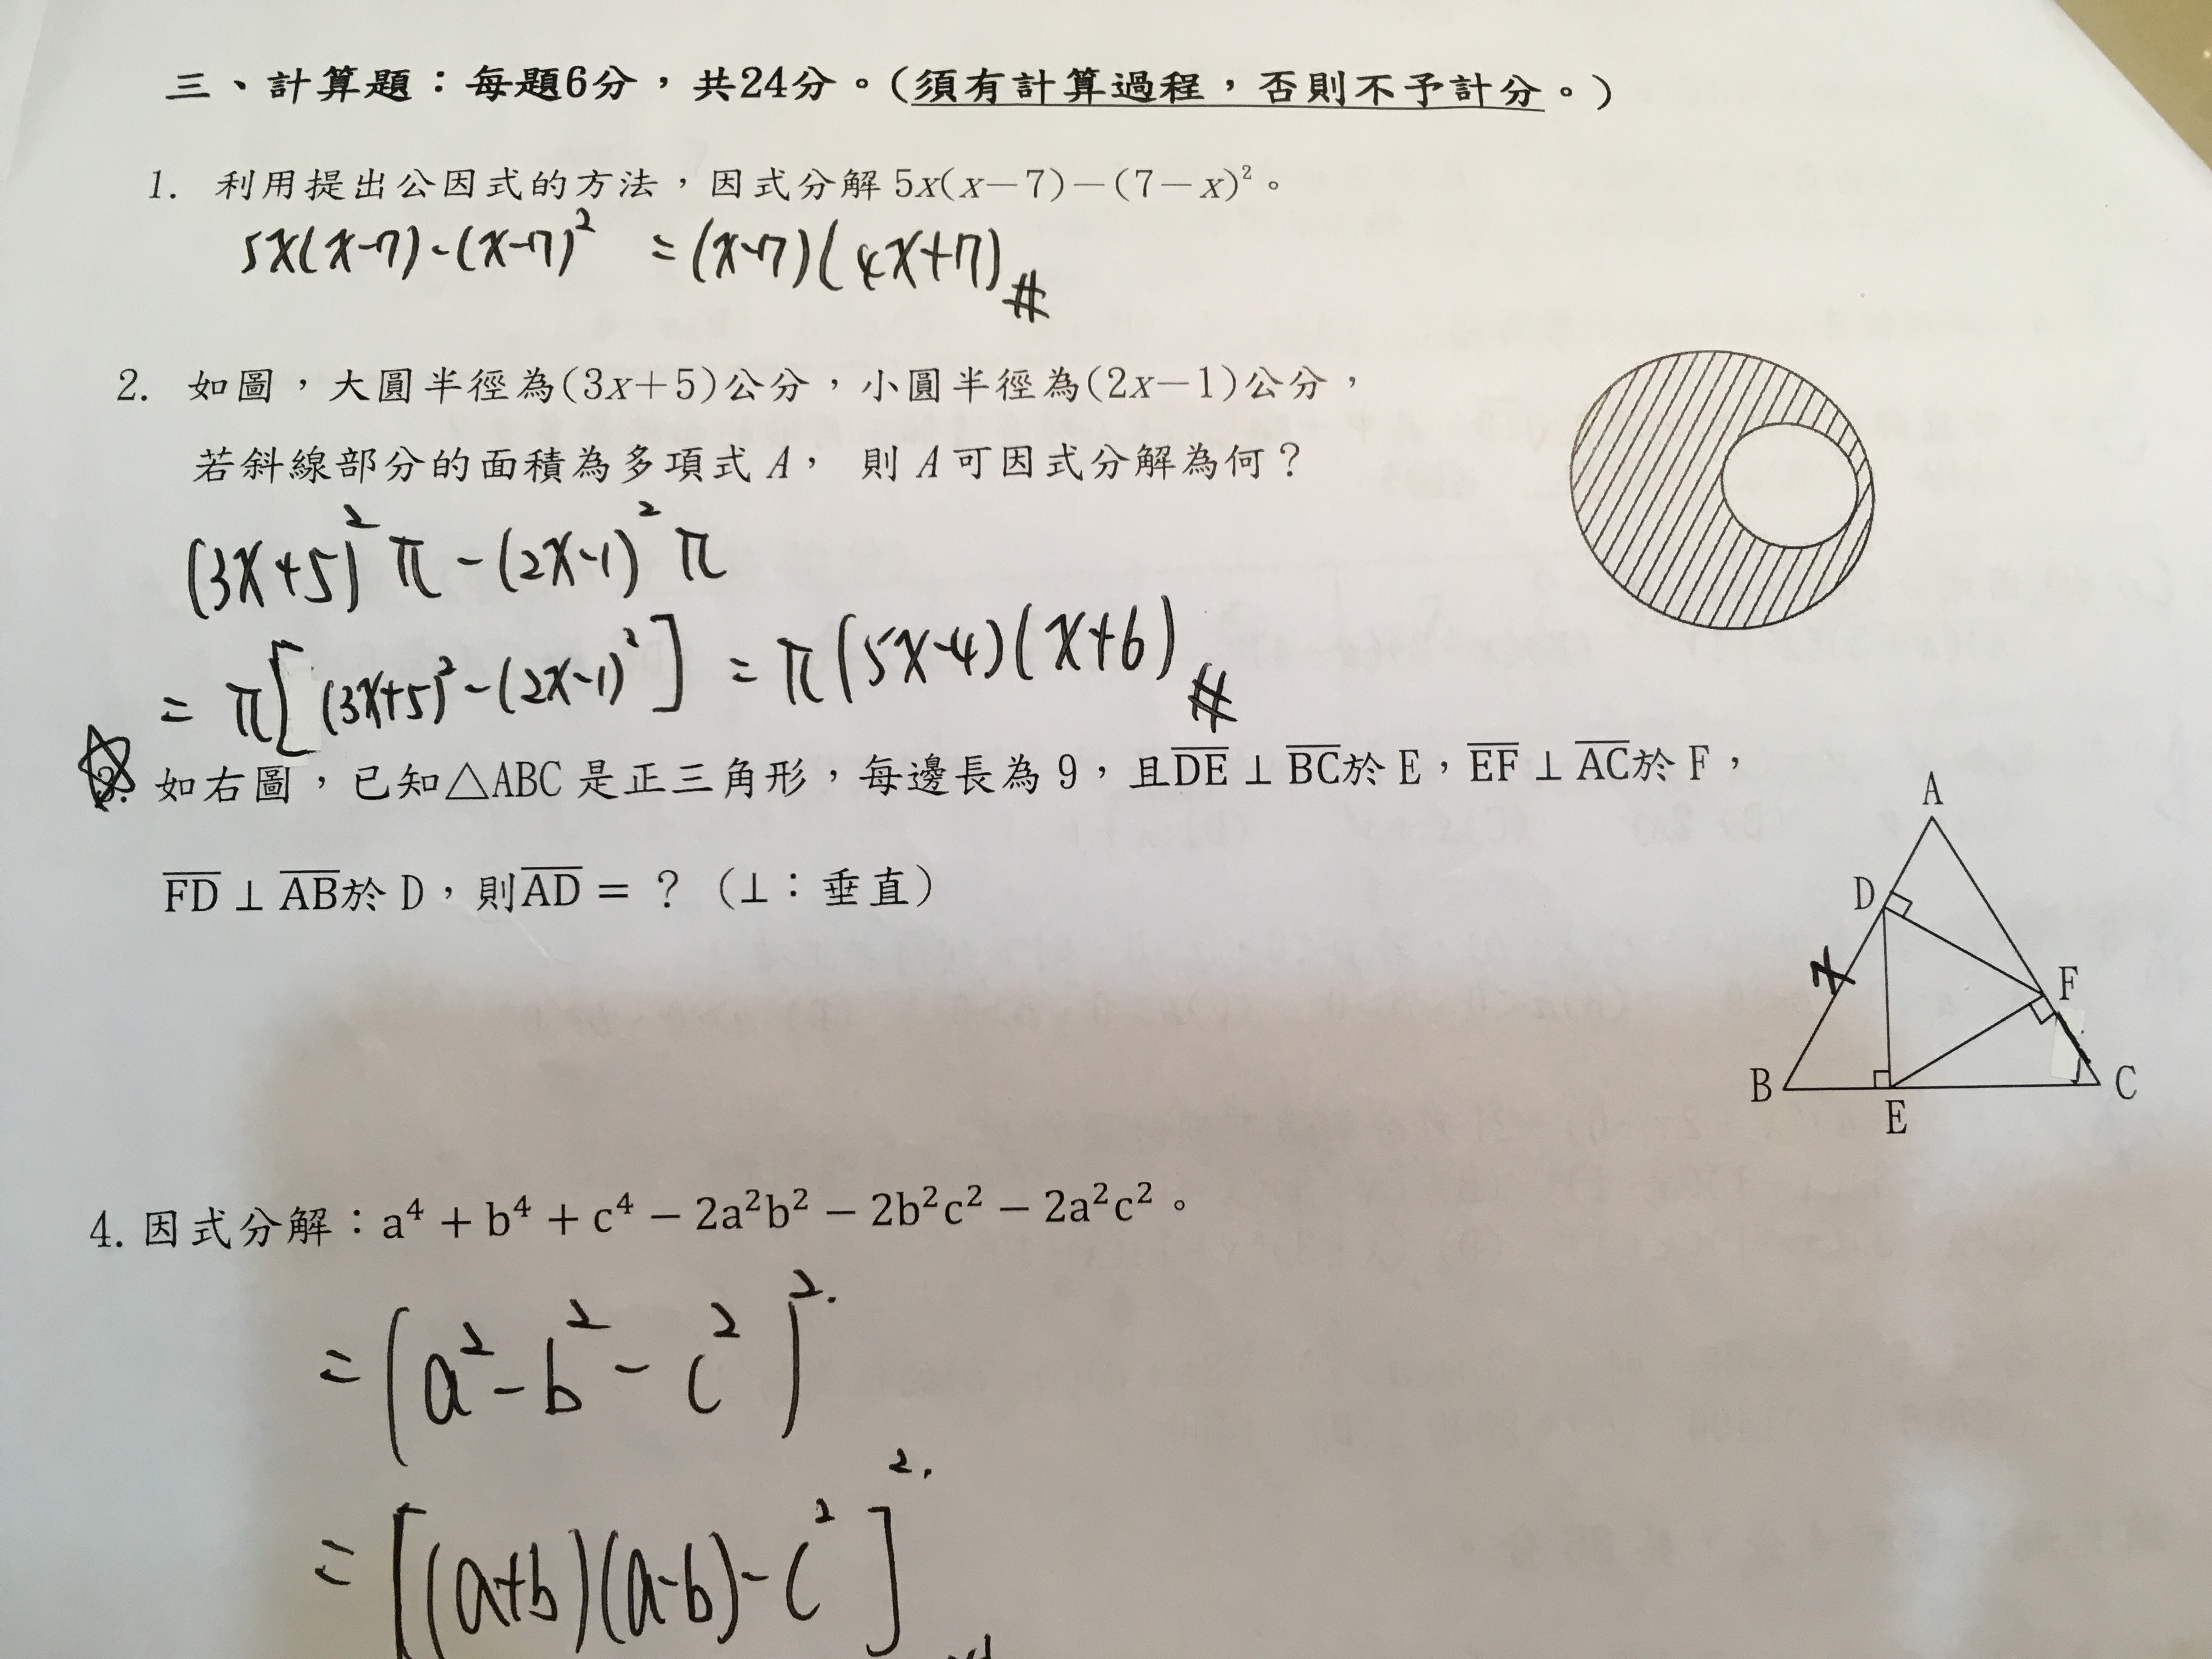 三、計算題：每題6分，共24分。(須有計算過程，否則不予計分。)
1. 利用提出公因式的方法，因式分解 5x(x－7)－(7－x)²。
5x(x-7)-(x-7)² =(x-7)(4x+7)#
2. 如圖，大圓半徑為(3x＋5)公分，小圓半徑為(2x－1)公分，
若斜線部分的面積為多項式 A， 則 A 可因式分解為何？
(3x+5)²π-(2x-1)²π
=π[(3x+5)²-(2x-1)²] =π(5x-4)(x+6)#
3. 如右圖，已知△ABC 是正三角形，每邊長為 9，且D̅E̅⊥B̅C̅於 E，E̅F̅⊥A̅C̅於 F，
F̅D̅⊥A̅B̅於 D，則A̅D̅＝？（⊥：垂直）
A
D
F
B
E
C
4. 因式分解：a⁴ + b⁴ + c⁴ − 2a²b² − 2b²c² − 2a²c²。
=(a²-b²-c²)².
=[(a+b)(a-b)-c²]².